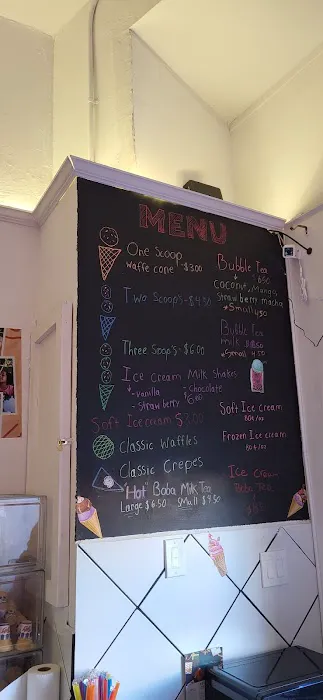 MENU
One Scoop
waffe cone -$3.00
Two Scoop's -$4.50
Three Scoop's - $6.00
Ice cream Milk Shakes
- vanilla
- Chocolate
- Straw berry
Soft Ice cream
Classic Waffles
Classic Crepes
"Hot" Boba Milk Tea
Large $6.50 SMall $4.50
Bubble Tea
Coconut, Mango,
Strawberry macha
Small
Bubble Tea
milk
Small 4.50
Soft Ice cream
80¢/oz
Frozen Ice cream
80¢/oz
Ice cream
Boba Tea